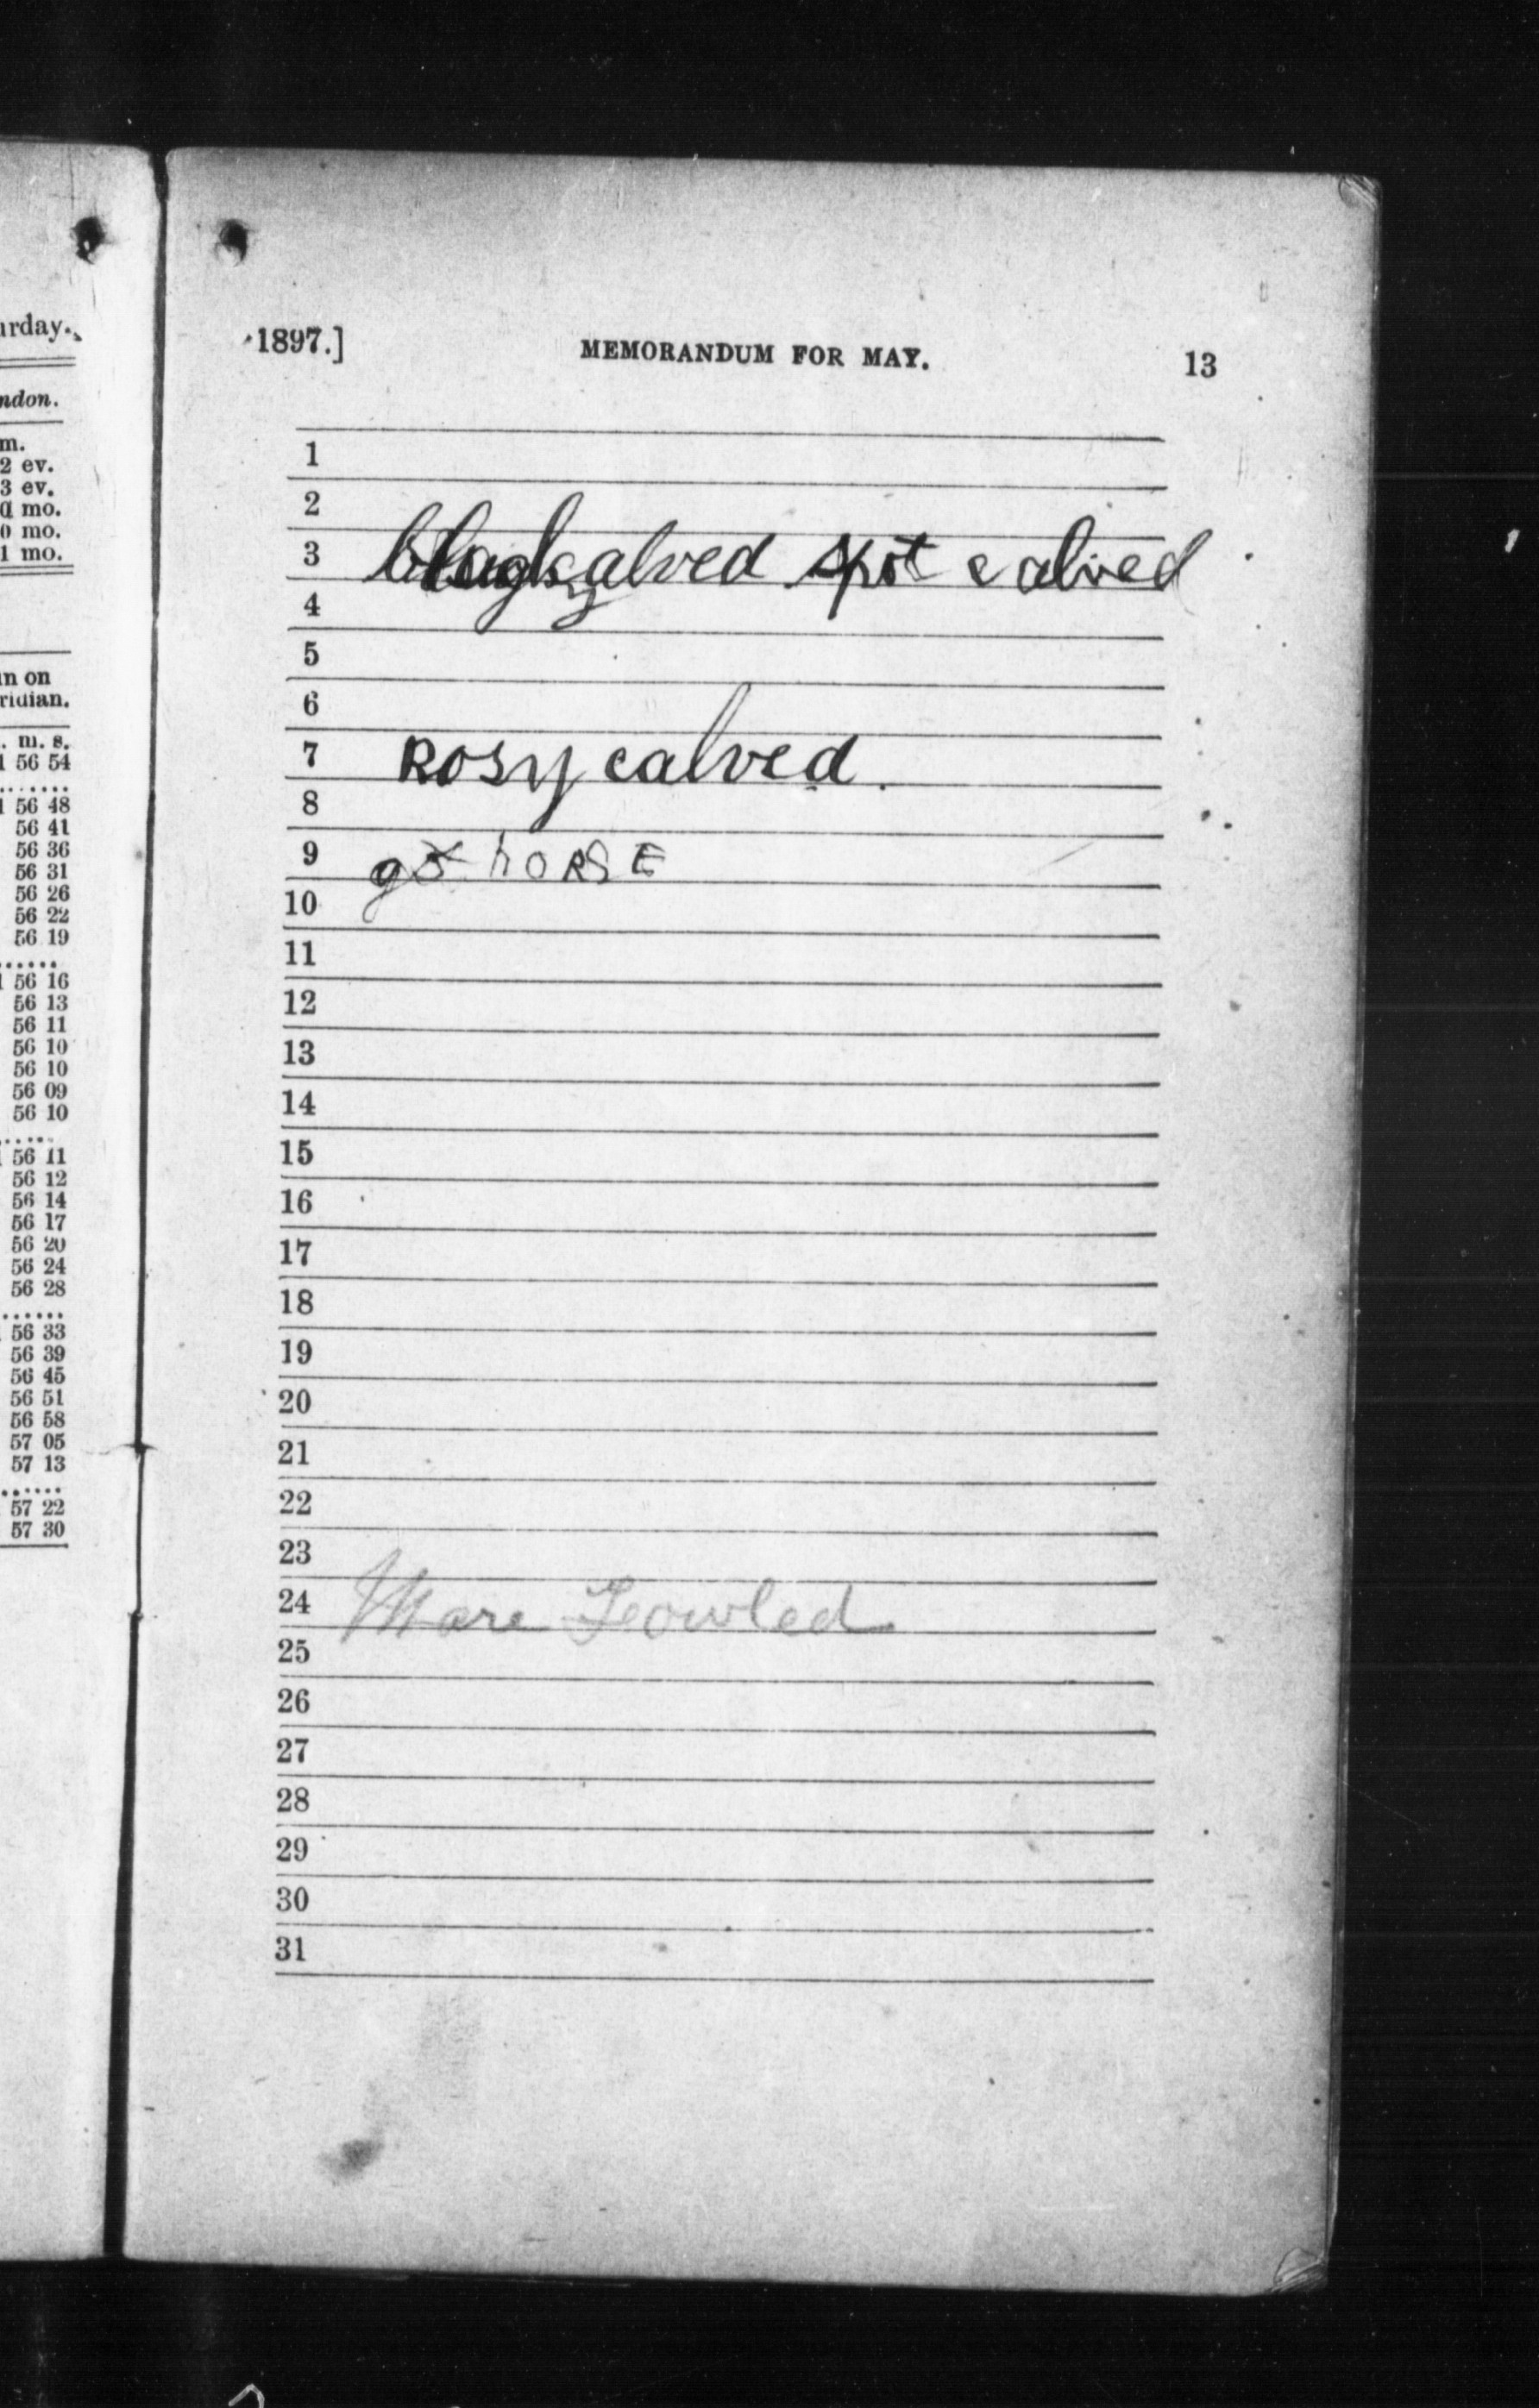 urday.
ndon.
m.
2 ev.
3 ev.
mo.
0 mo.
1 mo.
n on
ridian.
. m. s.
1 56 54
.......
1 56 48
56 41
56 36
56 31
56 26
56 22
56 19
......
1 56 16
56 13
56 11
56 10
56 10
56 09
56 10
......
56 11
56 12
56 14
56 17
56 20
56 24
56 28
......
56 33
56 39
56 45
56 51
56 58
57 05
57 13
......
57 22
57 30
1897.] MEMORANDUM FOR MAY. 13
1
2
3 calved spot calved
4
5
6
7 Rosy calved.
8
9 hORSE
10
11
12
13
14
15
16
17
18
19
20
21
22
23
24 Mare Fowled
25
26
27
28
29
30
31